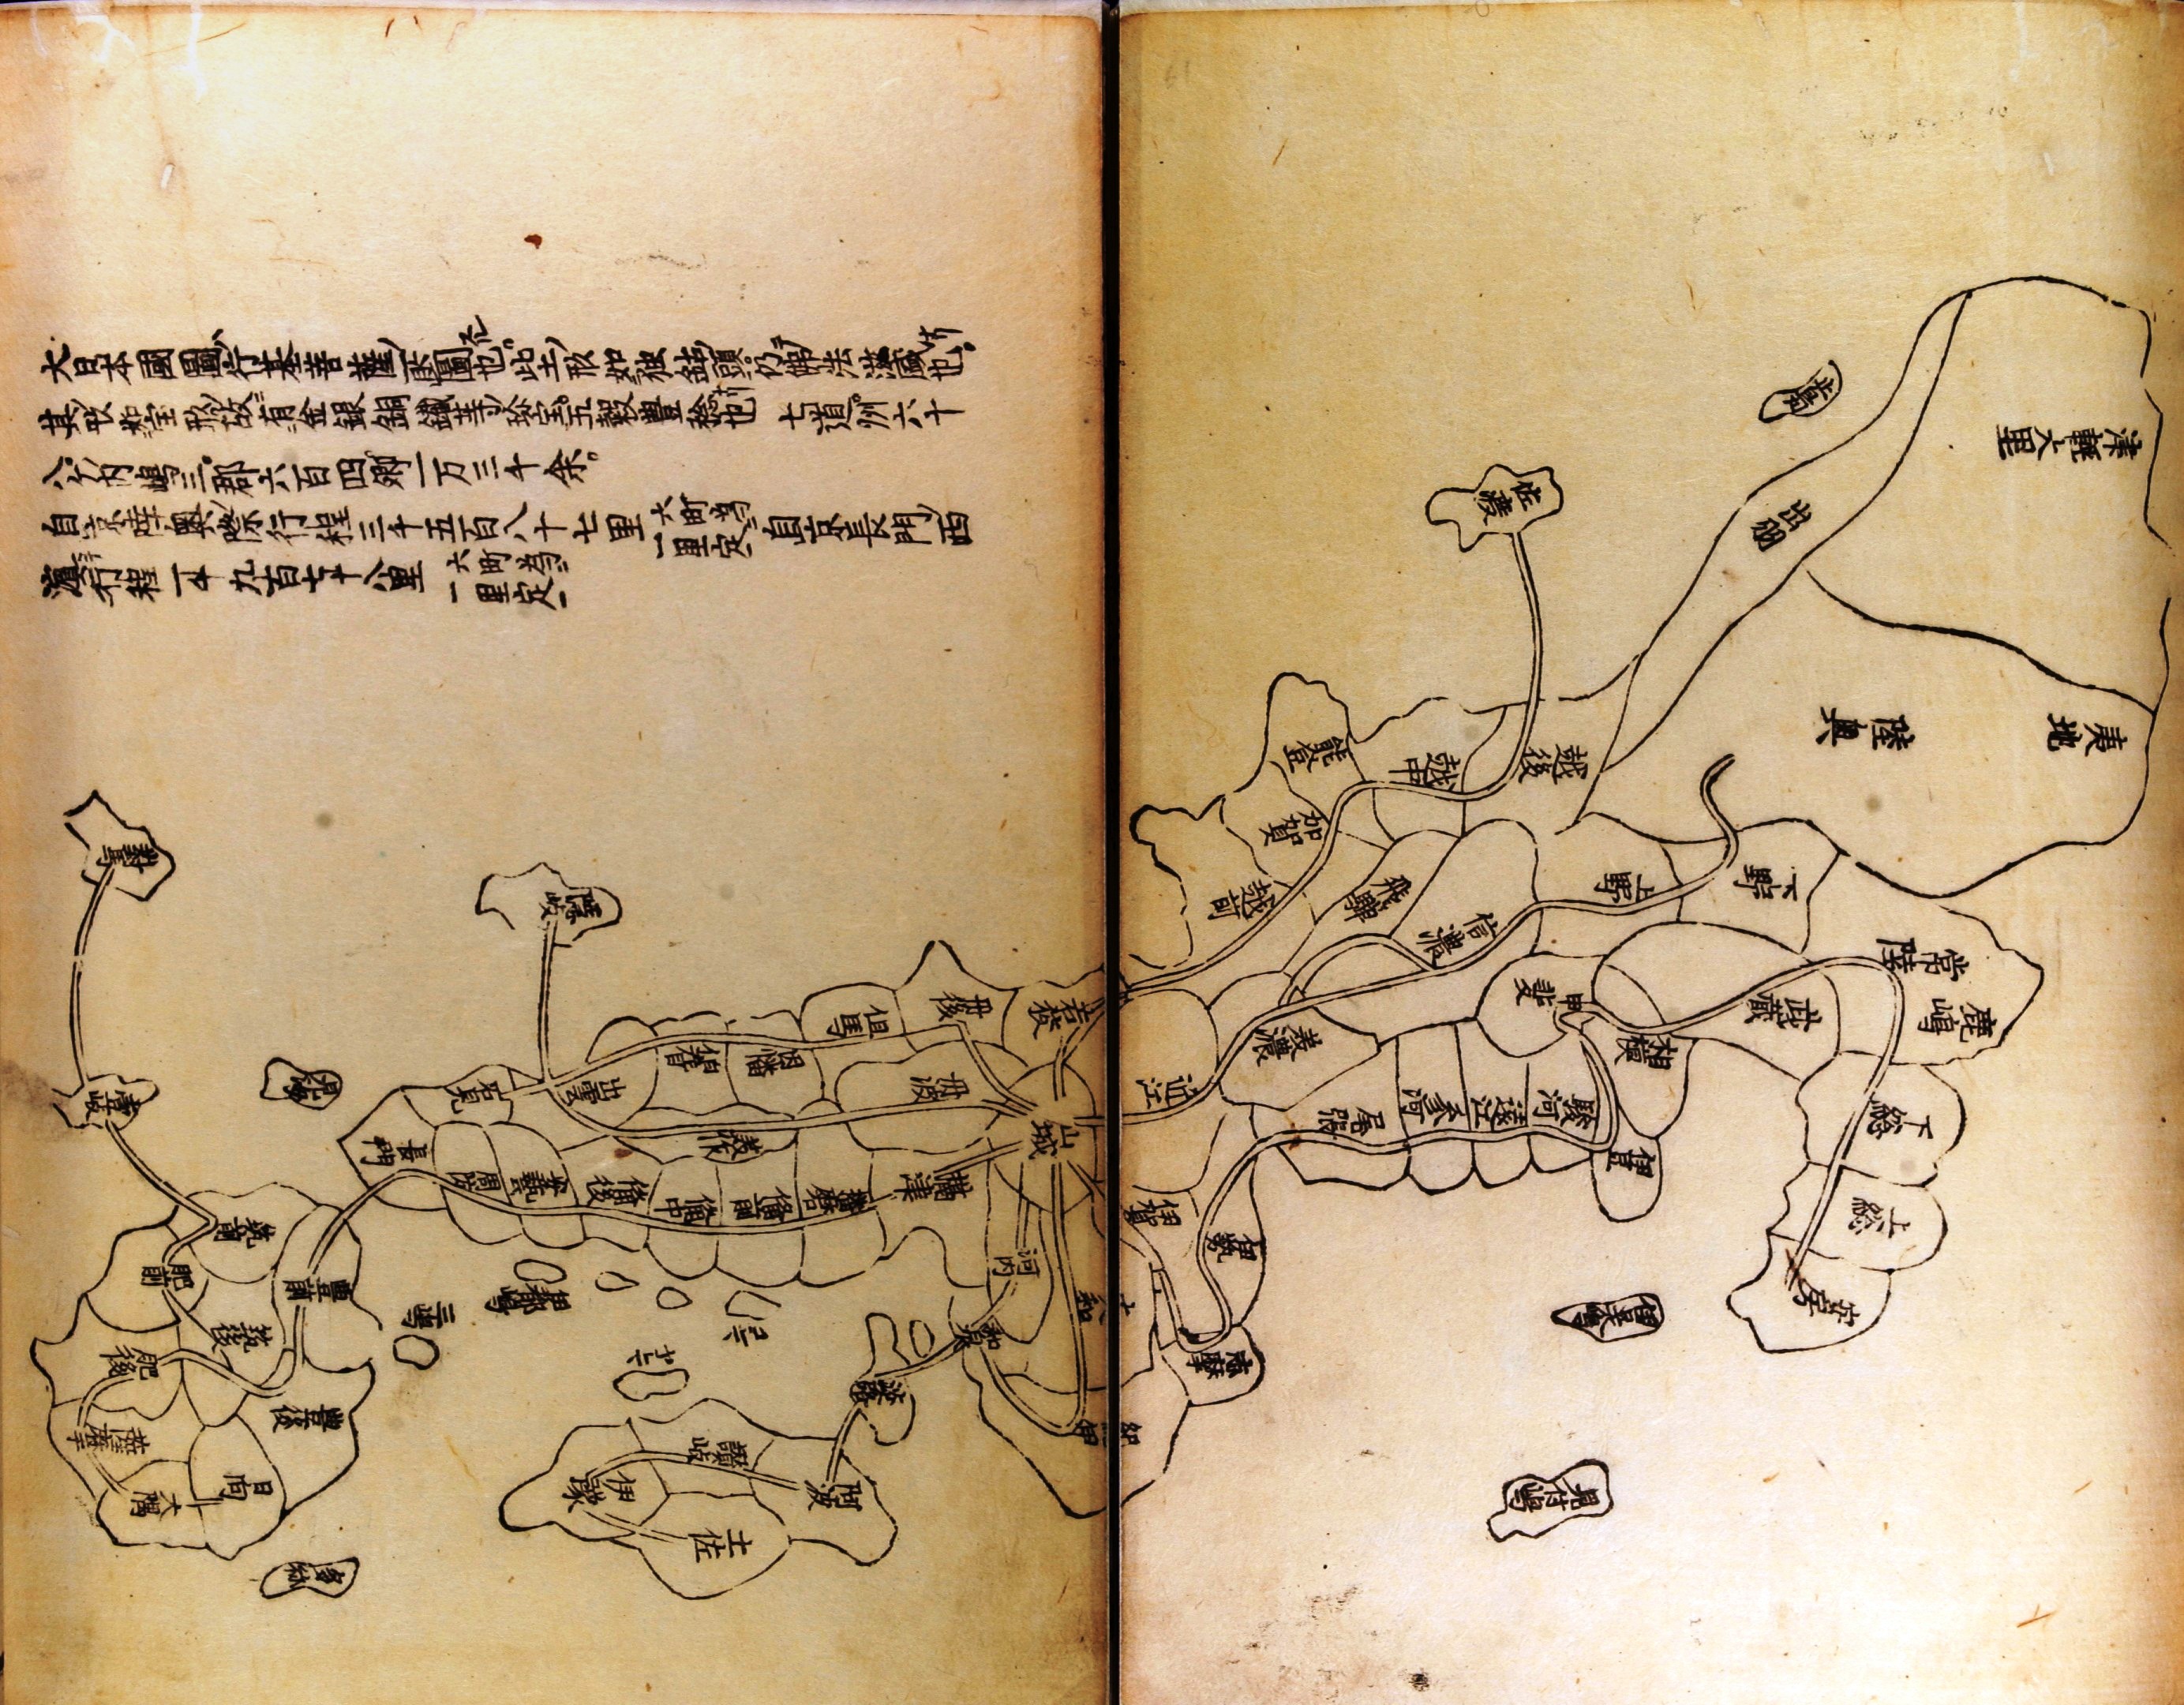 大日本國圖行基菩薩所圖也此土形如独鈷頭仍佛法滋盛也
其形如寳形故有金銀銅鐵等珎宝五穀豊稔也 七道州六十
八ケ内嶋三郡六百四郷一万三千余
自京陸奥際行程三千五百八十七里 六町為一里定 自京長門西
濱行程一千九百七十八里 六町為一里定
對馬
壹岐
隠岐
見嶋
筑前
肥前
豊前
筑後
肥後
豊後
薩摩
大隅
日向
多祢
長門
石見
出雲
伯耆
因幡
但馬
丹後
若狭
丹波
美作
周防
安藝
備後
備中
備前
播磨
攝津
山城
河内
和泉
大和
淡路
讃岐
阿波
伊豫
土佐
紀伊
佐渡
津軽大里
出羽
陸奥
夷地
能登
加賀
越前
越中
越後
飛騨
信濃
上野
下野
常陸
鹿嶋
武蔵
甲斐
相模
下総
上総
安房
近江
美濃
尾張
参河
遠江
駿河
伊豆
伊賀
伊勢
志摩
見付嶋